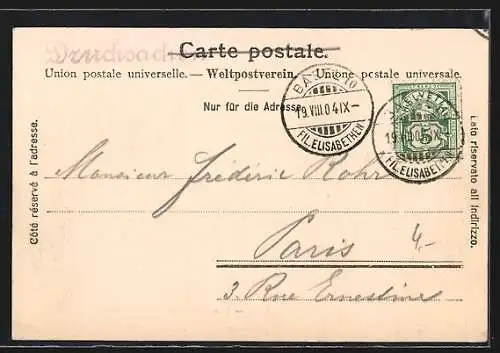 Drucksache
Carte postale.
Union postale universelle. — Weltpostverein. — Unione postale universale.
Nur für die Adresse.
BASEL 10
19.VIII.04 IX–
FIL. ELISABETHEN
HELVETIA
5
19.VIII.04 IX–
FIL. ELISABETHEN
Côté réservé à l'adresse.
Lato riservato all indirizzo.
Monsieur Frédéric Rohr
Paris 4,-
3, Rue Ernestine